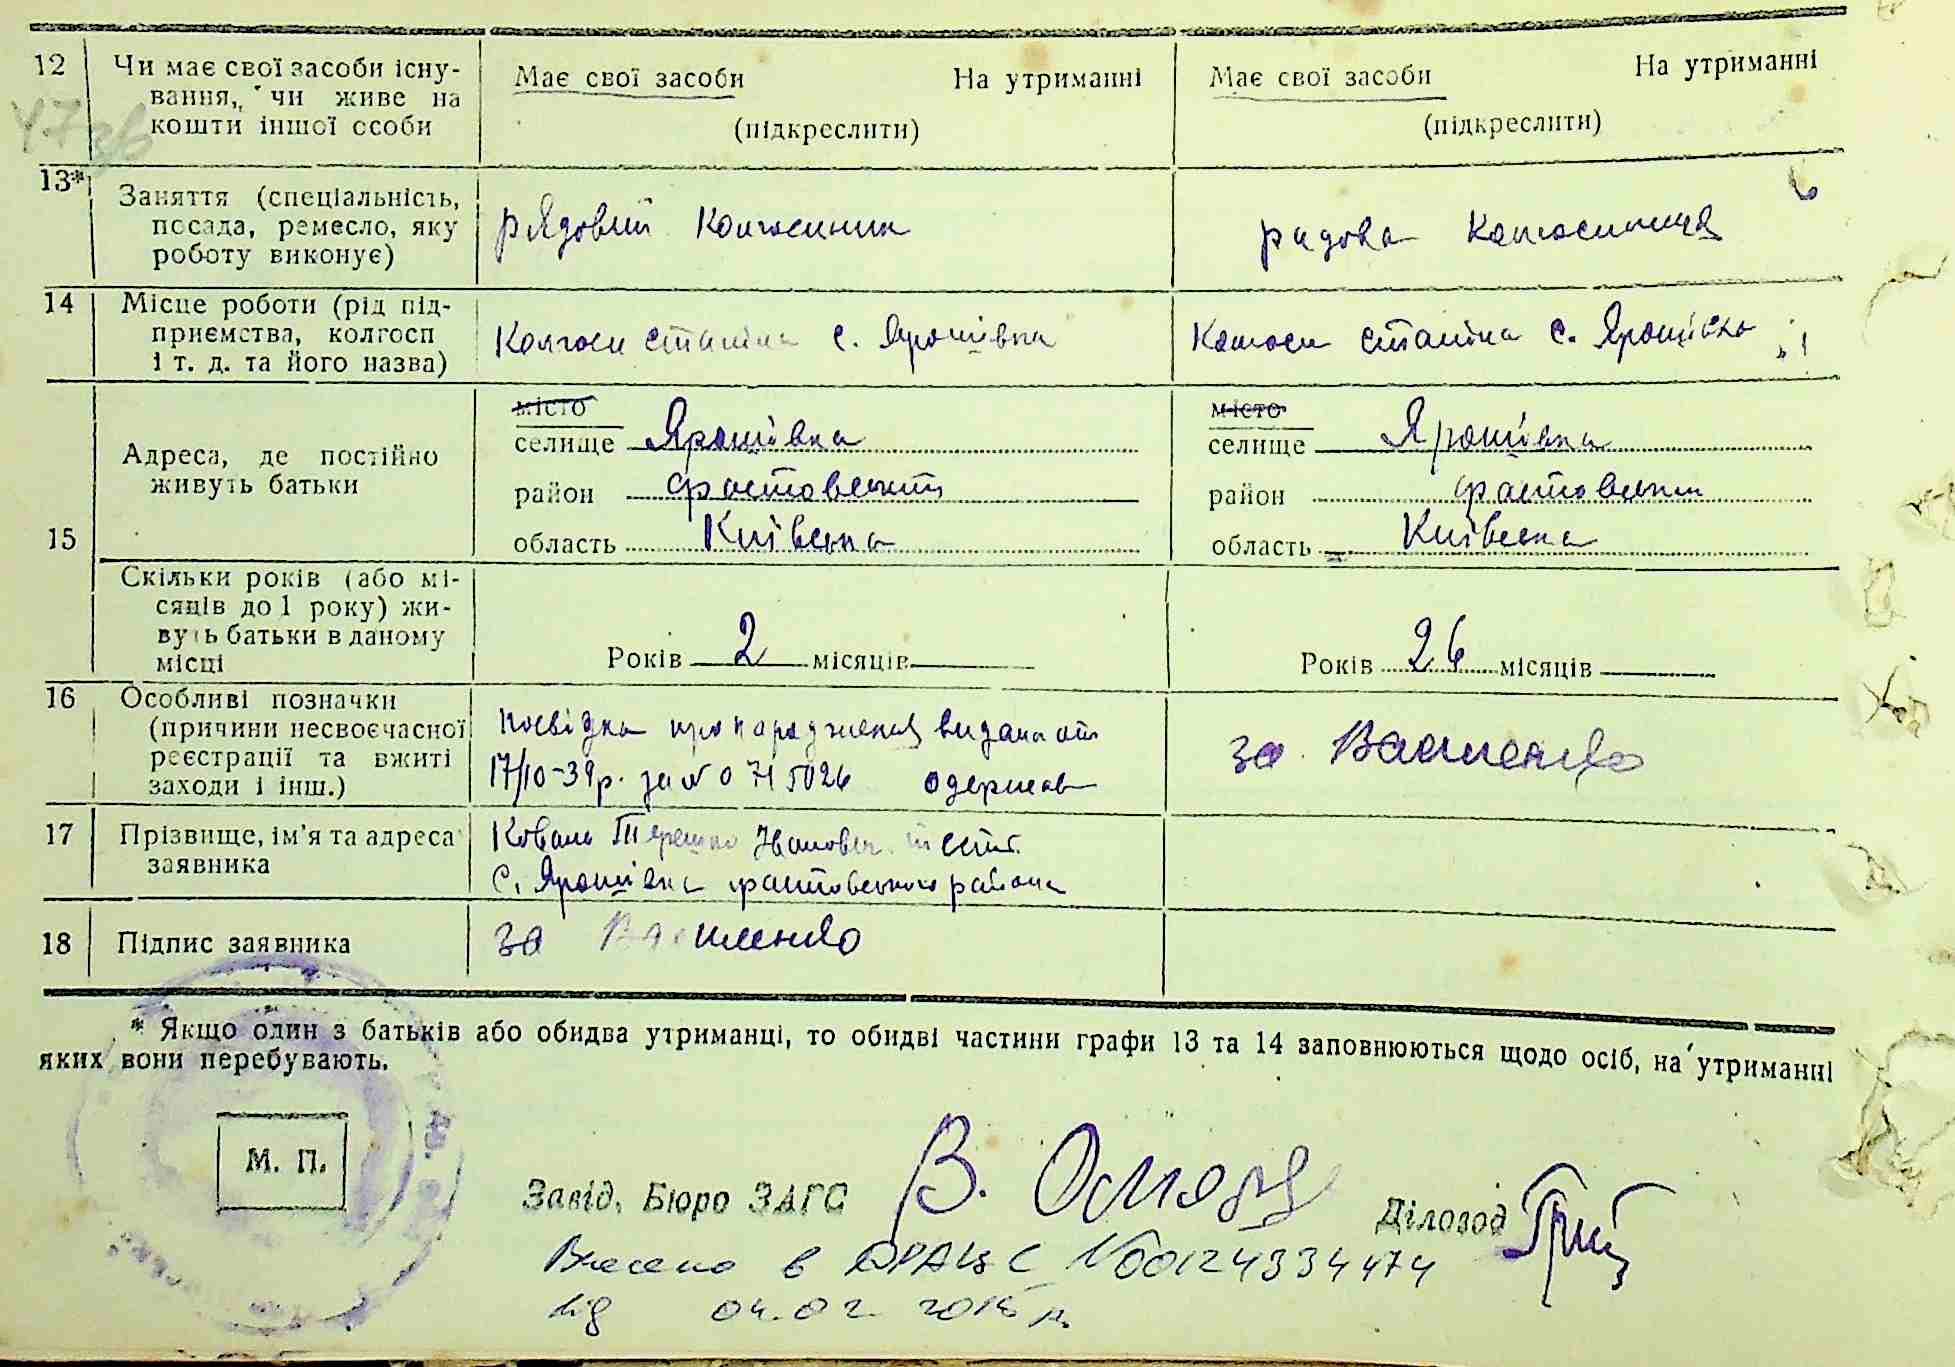 12
Чи має свої засоби існу-
вання, чи живе на
кошти іншої особи
Має свої засоби На утриманні
(підкреслити)
Має свої засоби На утриманні
(підкреслити)
13*
Заняття (спеціальність,
посада, ремесло, яку
роботу виконує)
рядовий колгоспник
рядова колгоспниця
14
Місце роботи (рід під-
приємства, колгосп
і т. д. та його назва)
Колгосп Сталіна с. Ярошівка
Колгосп Сталіна с. Ярошівка
15
Адреса, де постійно
живуть батьки
місто
селище Ярошівка
район Фастовський
область Київська
місто
селище Ярошівка
район Фастовський
область Київська
Скільки років (або мі-
сяців до 1 року) жи-
вуть батьки в даному
місці
Років 2 місяців
Років 26 місяців
16
Особливі позначки
(причини несвоєчасної
реєстрації та вжиті
заходи і інш.)
посвідка про народження видана от
17/10-39р. за № 0715026 одержав
за Василенко
17
Прізвище, ім'я та адреса
заявника
Коваль Терешко Іванович
с. Ярошівка Фастовського района
18
Підпис заявника
за Василенко
* Якщо один з батьків або обидва утриманці, то обидві частини графи 13 та 14 заповнюються щодо осіб, на утриманні
яких вони перебувають.
М. П.
Завід. Бюро ЗАГС В. Діловод
Внесено в ДРАЦС №00124334474
від 04.02.2015 р.